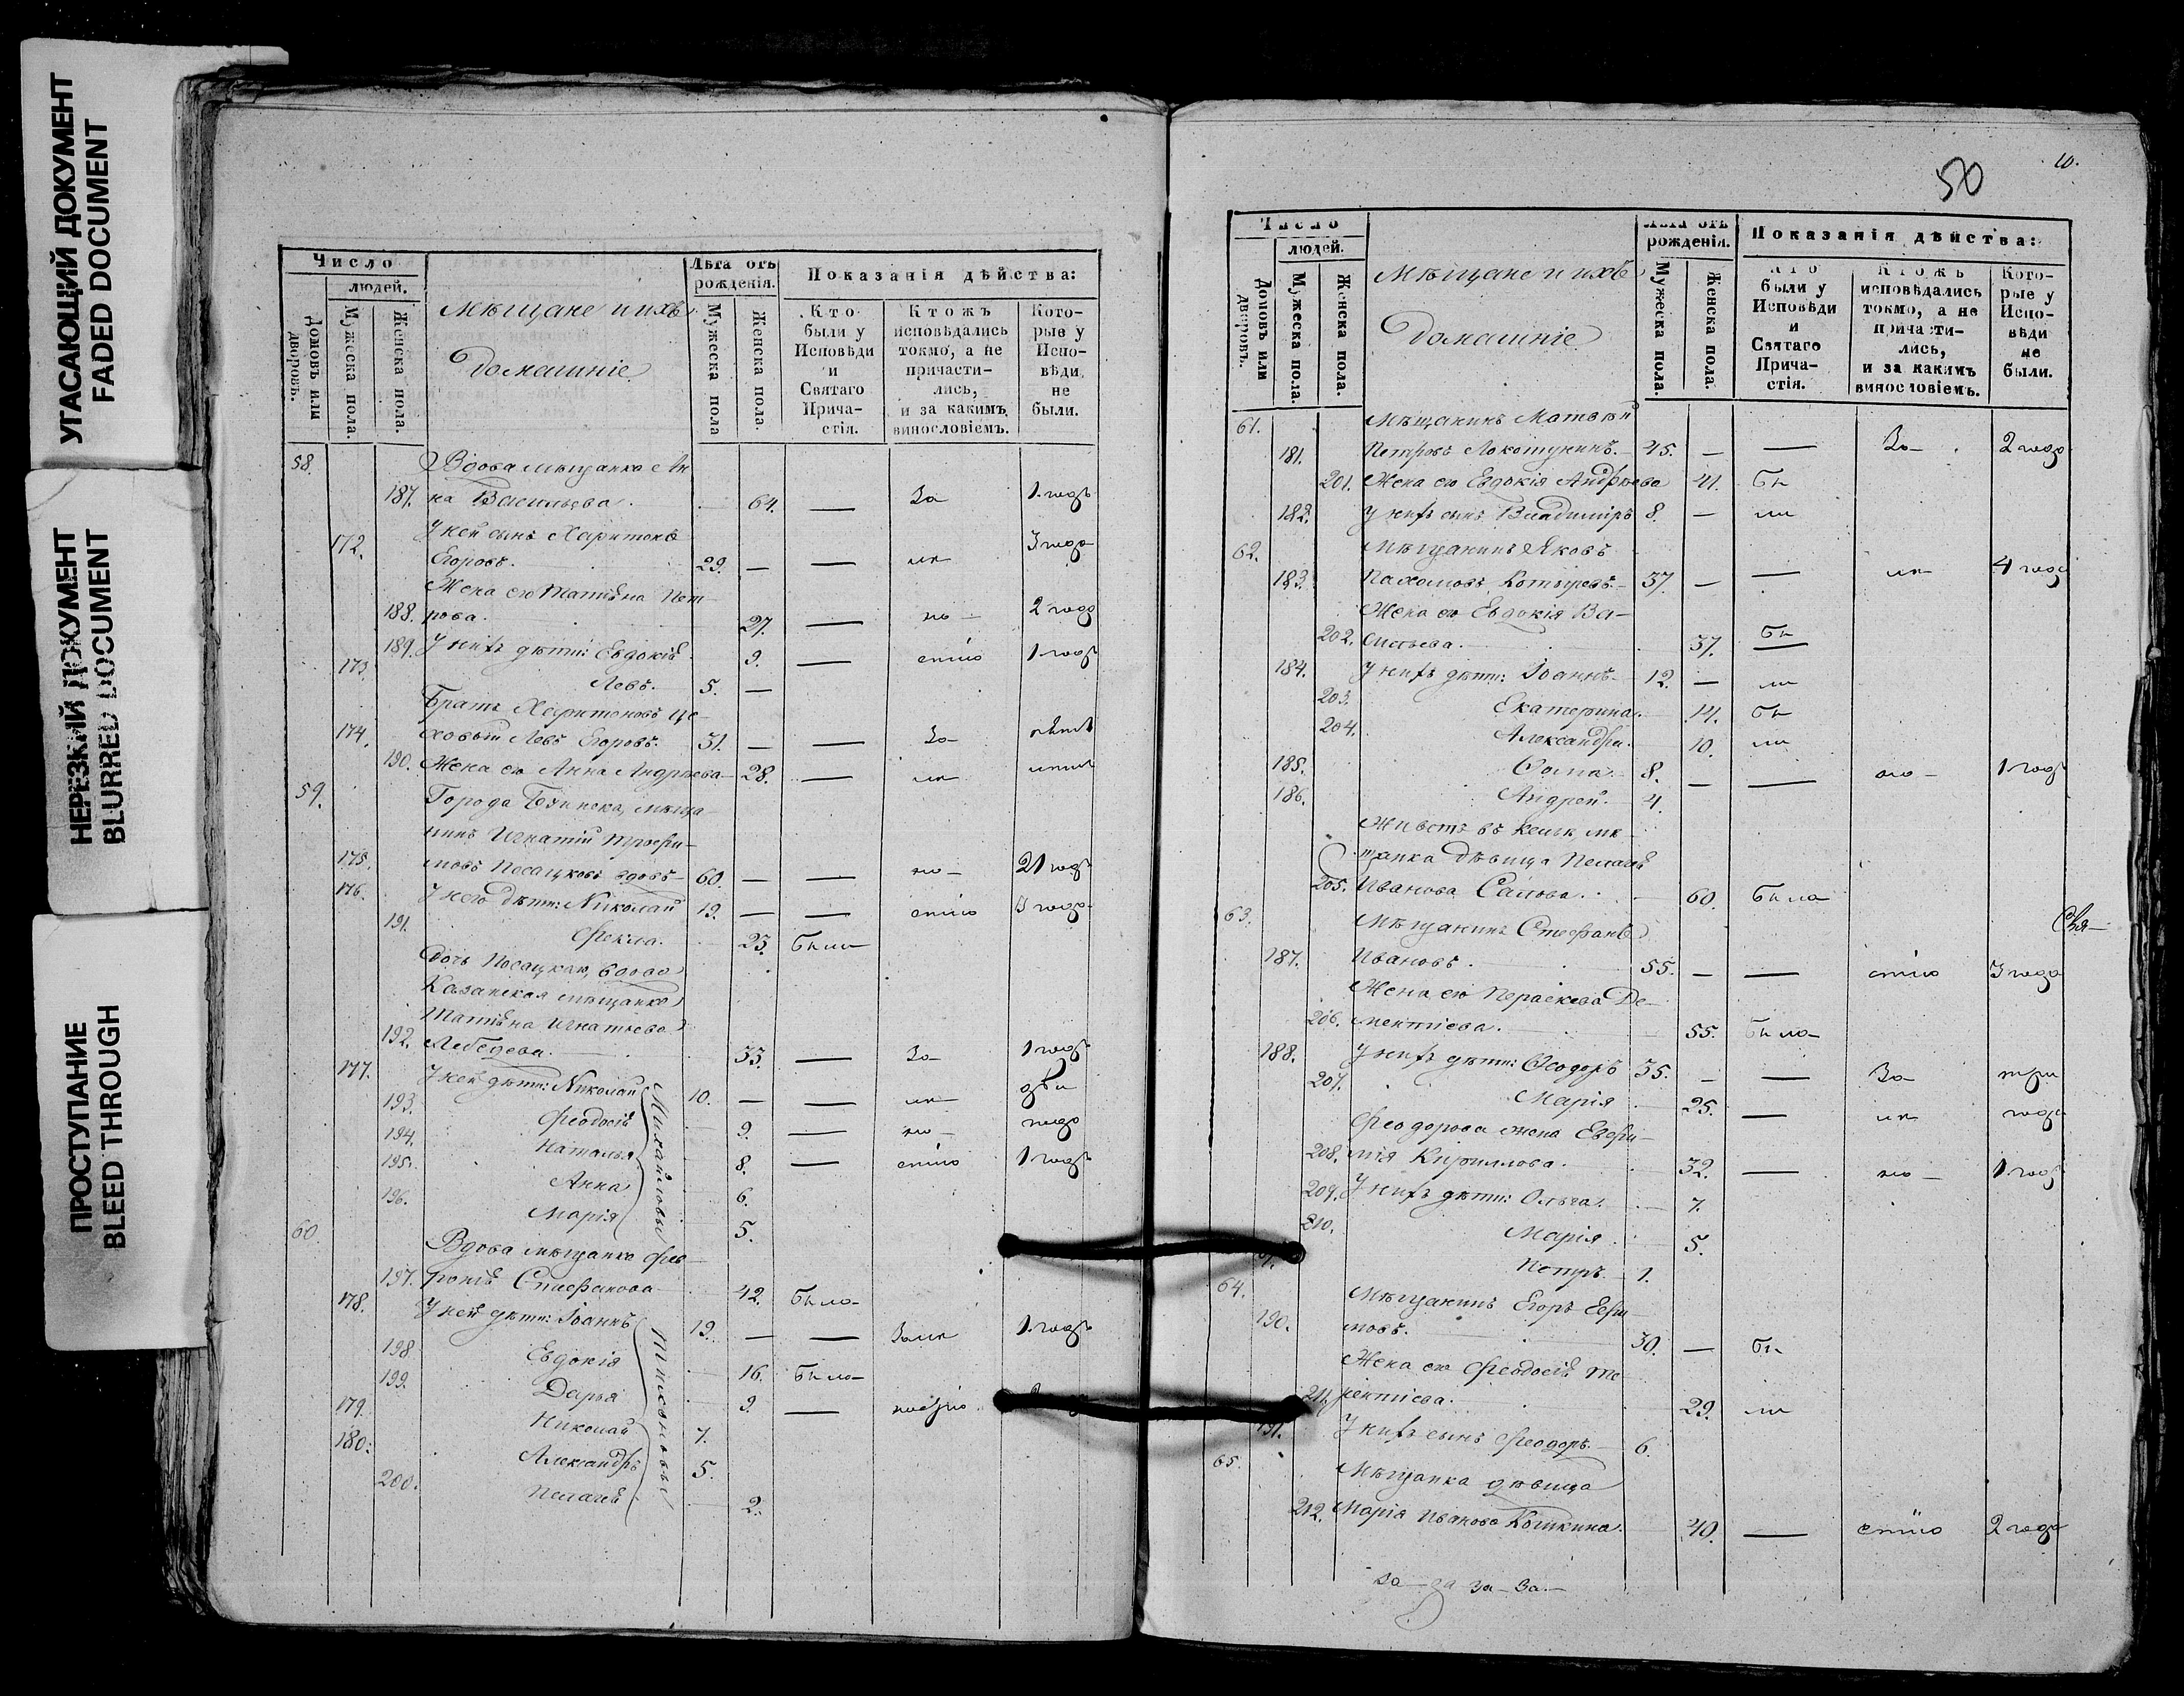 УГАСАЮЩИЙ ДОКУМЕНТ
FADED DOCUMENT
НЕРЕЗКИЙ ДОКУМЕНТ
BLURRED DOCUMENT
ПРОСТУПАНИЕ
BLEED THROUGH
Число
людей.
Домовъ или дворовъ.
Мужеска пола.
Женска пола.
Мѣщане и ихъ
Домашніе
Лѣта отъ рожденія.
Мужеска пола
Женска пола.
Показанія дѣйства:
Кто были у Исповѣди и Святаго Прича- стія.
Ктожъ исповѣдались токмо, а не причасти- лись, и за какимъ винословіемъ.
Кото- рые у Испо- вѣди не были.
58.
Вдова мѣщанка Ан
187. на Васильева. 64. — За 1. годъ
У ней сынъ Харитонъ
172. Егоровъ. 29. — — 3 года
Жена его Татіяна Пет
188. рова. 27. — 2 года
189. У нихъ дѣти: Евдокія 9. — 1 годъ
173. Левъ. 5. —
Братъ Харитоновъ це-
174. ховый Левъ Егоровъ. 31. — — За-
190. Жена его Анна Андрѣева 28. —
59.
Города мѣща
нинъ Игнатій Трофи-
175. мовъ Посацковъ вдовъ 60. — — 21 годъ
176. У него дѣти: Николай 19. — — 3 года
191. Фекла. 23. Были
Дочь Посацкаго, вдова
Казанская мѣщанка
Татіяна Игнатьева
192. Лебедева. 33. — За- 1 годъ
177. У ней дѣти: Николай 10. — — два
193. Феодосія 9. — года
194. Наталья 8. — 1 годъ
195. Анна 6.
196. Марія 5.
Михайловы
60.
Вдова мѣщанка Фев
197. ронія Стефанова 42. Была
178. У ней дѣти: Іоаннъ 19. — — 1. годъ
198 Евдокія 16. Была
199. Дарья 9. —
179. Николай 7.
180. Александръ 5.
200. Пелагея 2.
50
10.
Число
людей.
Домовъ или дворовъ.
Мужеска пола.
Женска пола.
Мѣщане и ихъ
Домашніе
Лѣта отъ рожденія.
Мужеска пола.
Женска пола.
Показанія дѣйства:
Кто были у Исповѣди и Святаго Прича- стія.
Ктожъ исповѣдались токмо, а не причасти- лись, и за какимъ винословіемъ.
Кото- рые у Испо- вѣди не были.
61.
Мѣщанинъ Матвѣй
181. Петровъ Локотунинъ. 45. — — За- 2 года
201. Жена его Евдокія Андрѣева 41. Бы
182. У нихъ сынъ Владиміръ 8. — ли
62.
Мѣщанинъ Яковъ
183. Пахомовъ Котыревъ. 37. — — 4 года
Жена его Евдокія Ва-
202. сильева. 37. Бы
184. У нихъ дѣти: Іоаннъ 12. — ли
203. Екатерина. 14. Бы
204. Александра. 10. ли
185. Фома. 8. — — 1 годъ
186. Андрей. 4.
Живетъ въ кельи мѣ
щанка дѣвица Пелагея
205. Иванова 60. Была
63.
Мѣщанинъ Стефанъ
187. Ивановъ. 55. — — 3 года
Жена его Параскева Де-
206. ментіева. 55. Была
188. У нихъ дѣти: Феодоръ 35. — — За- три
207. Марія 25. — года
Феодорова жена Евфи-
208. мія Кириллова. 32. — 1 годъ
209. У нихъ дѣти: Ольга. 7.
210. Марія 5.
Петръ 1.
64.
Мѣщанинъ Егоръ Ефи
190. мовъ. 30. — Бы
Жена его Феодосія Те
211. рентіева. 29. ли
191. У нихъ сынъ Феодоръ. 6.
65.
Мѣщанка дѣвица
212. Марія Иванова Кошкина. 40. — 2 года
за- за за- за-